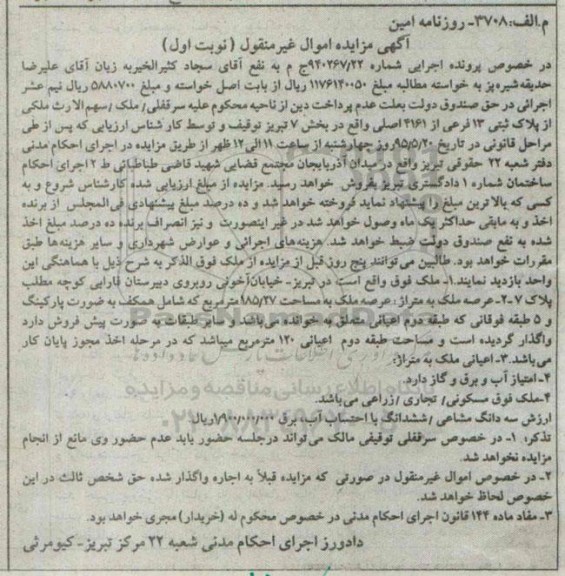 م.الف:۳۷۰۸- روزنامه امین
آگهی مزایده اموال غیرمنقول (نوبت اول)
در خصوص پرونده اجرایی شماره ۹۴۰۲۶۷/۲۲ج م به نفع آقای سجاد کثیرالخیربه زیان آقای علیرضا
حدیقه شیره‌پز به خواسته مطالبه مبلغ ۱۱۷۶۱۴۰۰۵۰ ریال از بابت اصل خواسته و مبلغ ۵۸۸۰۷۰۰ ریال نیم عشر
اجرائی در حق صندوق دولت بعلت عدم پرداخت دین از ناحیه محکوم علیه سرقفلی/ ملک /سهم الارث ملکی
از پلاک ثبتی ۱۳ فرعی از ۴۱۶۱ اصلی واقع در بخش ۷ تبریز توقیف و توسط کارشناس ارزیابی که پس از طی
مراحل قانونی در تاریخ ۹۵/۵/۲۰ روز چهارشنبه از ساعت ۱۱ الی ۱۲ ظهر از طریق مزایده در اجرای احکام مدنی
دفتر شعبه ۲۲ حقوقی تبریز واقع در میدان آذربایجان مجتمع قضایی شهید قاضی طباطبائی ط ۲ اجرای احکام
ساختمان شماره ۱ دادگستری تبریز بفروش خواهد رسید. مزایده از مبلغ ارزیابی شده کارشناس شروع و به
کسی که بالاترین مبلغ را پیشنهاد نماید فروخته خواهد شد و ده درصد مبلغ پیشنهادی فی المجلس از برنده
اخذ و به مابقی حداکثر یک ماه وصول خواهد شد در غیر اینصورت و نیز انصراف برنده ده درصد مبلغ اخذ
شده به نفع صندوق دولت ضبط خواهد شد. هزینه‌های اجرائی و عوارض شهرداری و سایر هزینه‌ها طبق
مقررات خواهد بود. طالبین می‌توانند پنج روز قبل از مزایده از ملک فوق الذکر به شرح ذیل با هماهنگی این
واحد بازدید نمایند.۱- ملک فوق واقع است در تبریز- خیابان آخونی روبروی دبیرستان فارابی کوچه مطلب
پلاک ۷-۲- عرصه ملک به متراژ: عرصه ملک به مساحت ۱۸۵/۲۷ مترمربع که شامل همکف به صورت پارکینگ
و ۵ طبقه فوقانی که طبقه دوم اعیانی متعلق به خوانده می‌باشد و سایر طبقات به صورت پیش فروش دارد
واگذار گردیده است و مساحت طبقه دوم اعیانی ۱۲۰ مترمربع میباشد که در مرحله اخذ مجوز پایان کار
می‌باشد.۳- اعیانی ملک به متراژ:
۴-امتیاز آب و برق و گاز دارد.
۴-ملک فوق مسکونی/ تجاری /زراعی می‌باشد.
ارزش سه دانگ مشاعی /ششدانگ با احتساب آب، برق ۱/۹۰۰/۰۰۰/۰۰۰ریال
تذکر: ۱- در خصوص سرقفلی توقیفی مالک می‌تواند درجلسه حضور یابد عدم حضور وی مانع از انجام
مزایده نخواهد شد.
۲- در خصوص اموال غیرمنقول در صورتی که مزایده قبلاً به اجاره واگذار شده حق شخص ثالث در این
خصوص لحاظ خواهد شد.
۳- مفاد ماده ۱۴۴ قانون اجرای احکام مدنی در خصوص محکوم له (خریدار) مجری خواهد بود.
دادورز اجرای احکام مدنی شعبه ۲۲ مرکز تبریز- کیومرثی